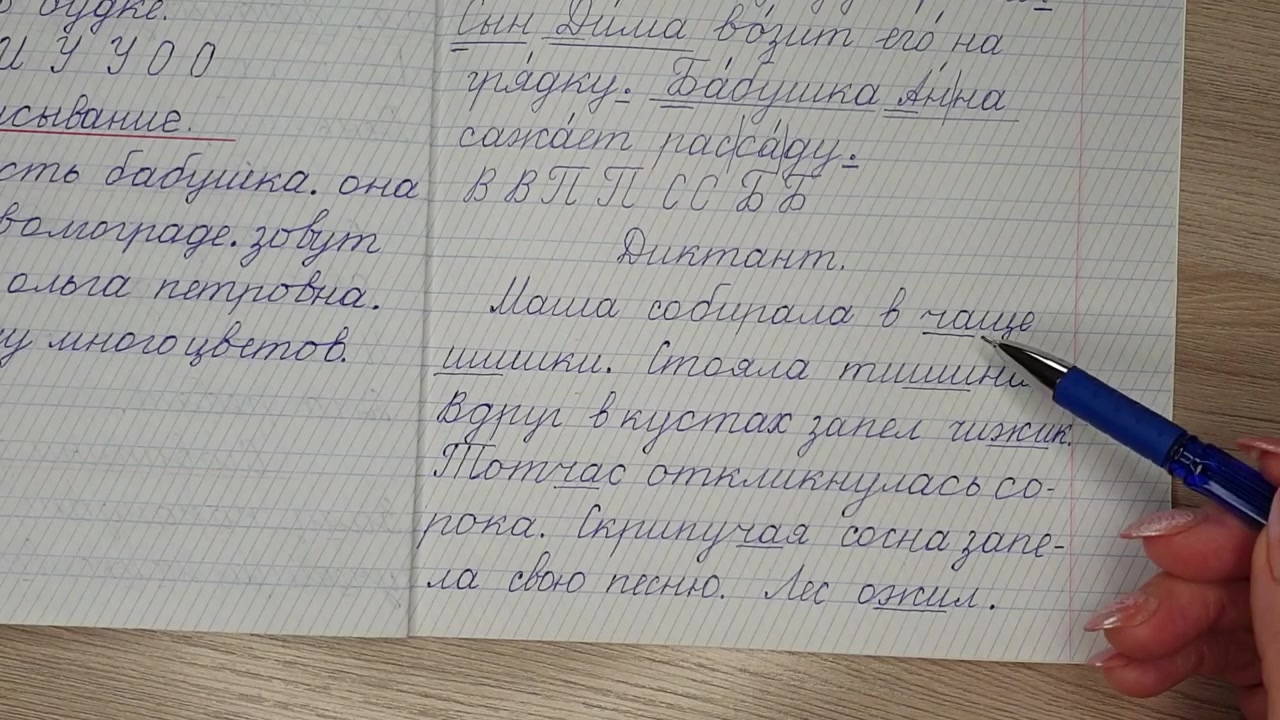 будке.
И У У О О
сывание.
сть бабушка. она
волгограде. зовут
ольга петровна.
у много цветов.
Сын Дима возит его на
грядку. Бабушка Анна
сажает рассаду.
В В П П С С Б Б
Диктант.
Маша собирала в чаще
шишки. Стояла тишина
Вдруг в кустах запел чижик.
Тотчас откликнулась со-
рока. Скрипучая сосна запе-
ла свою песню. Лес ожил.